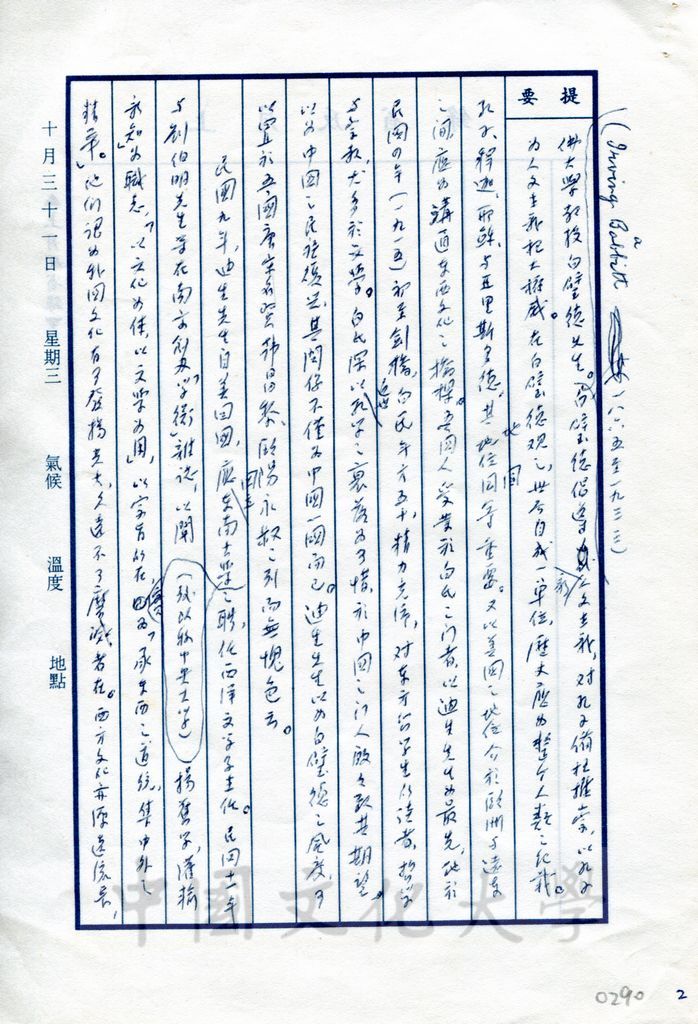 (Irving Babbitt 一八六五至一九三三)
提要
佛大學教授白璧德先生。白璧德倡導新人文主義,對孔子備極推崇,以孔子
為人文主義極大權威。在白璧德觀之,世界自成一單位,歷史應為整個人類之紀載。
孔子、釋迦、耶穌、與亞里斯多德,其地位同等重要。又以美國之地位介於歐洲與遠東
之間,應為溝通東西文化之橋樑。吾國人受業於白氏之門者,以迪生先生為最先,他於
民國四年(一九一五)初至劍橋,白氏年方五十,精力充沛,對東方留學生
與宗教,尤多於文學。白氏深以近世孔學之衰落為可惜,於中國之門人殷殷致其期望。
以為中國之民族復興,其關係不僅為中國一國而已。迪生先生以為白璧德之風度,可
以置於吾國唐宋名賢韓昌黎、歐陽永叔之列而無愧色云。
民國九年,迪生先生自美回國,應東南大學之聘,任西洋文學系主任。民國十一年
與劉伯明先生等在南京創办「學衡」雜誌,以闡 (後改稱中央大學) 揚舊學,灌輸
新知為職志,「以文化為體,以文學為用」,
承東西之道統,集中外之
精華」。他們認為外國文化有可發揚光大,久遠不可磨滅者在。西方文化亦源遠流長,
十月三十一日 星期三 氣候 溫度 地點
中國文化大學
0290 2